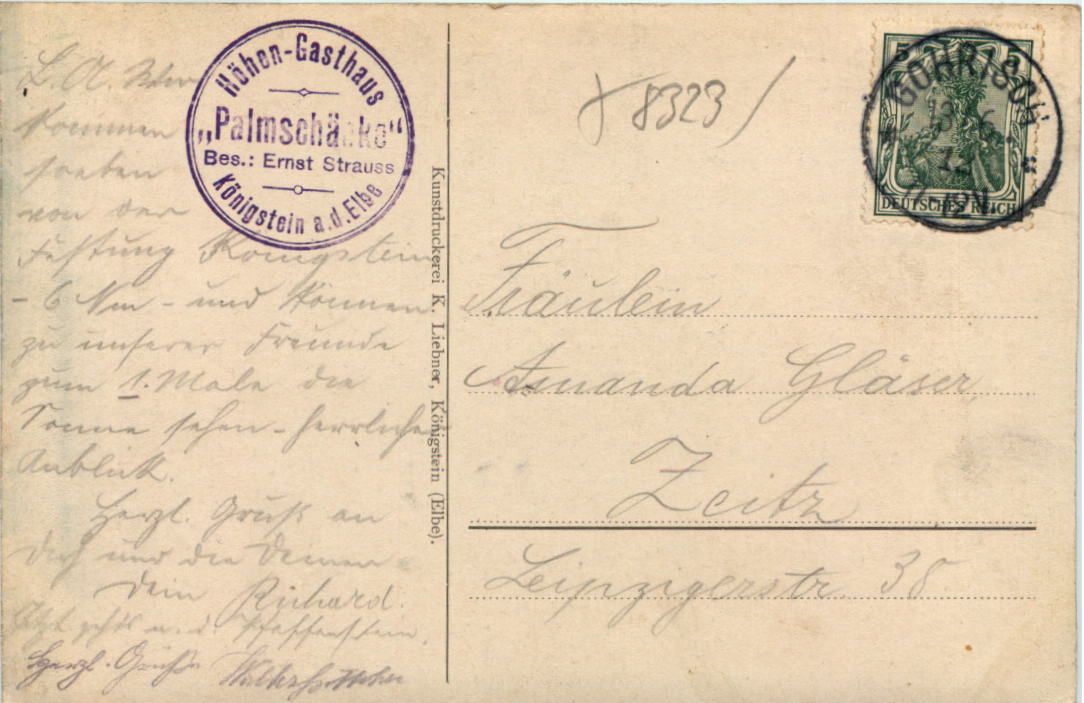 L. A. Wir
kommen
soeben
von der
Festung Königstein
- 6 Nm - und können
zu unserer Freunde
zum 1. Male die
Sonne sehen - herrlicher
Anblick.
Herzl. Gruß an
Dich und die Deinen
Dein Richard.
Jetzt geht's n. d. Pfaffenstein.
Herzl. Grüße
Höhen-Gasthaus
„Palmschänke"
Bes.: Ernst Strauss
Königstein a.d. Elbe
Kunstdruckerei K. Liebner, Königstein (Elbe).
8323
5
GOHRISCH
13
12
DEUTSCHES REICH
Fräulein
Amanda Gläser,
Zeitz
Leipzigerstr. 38